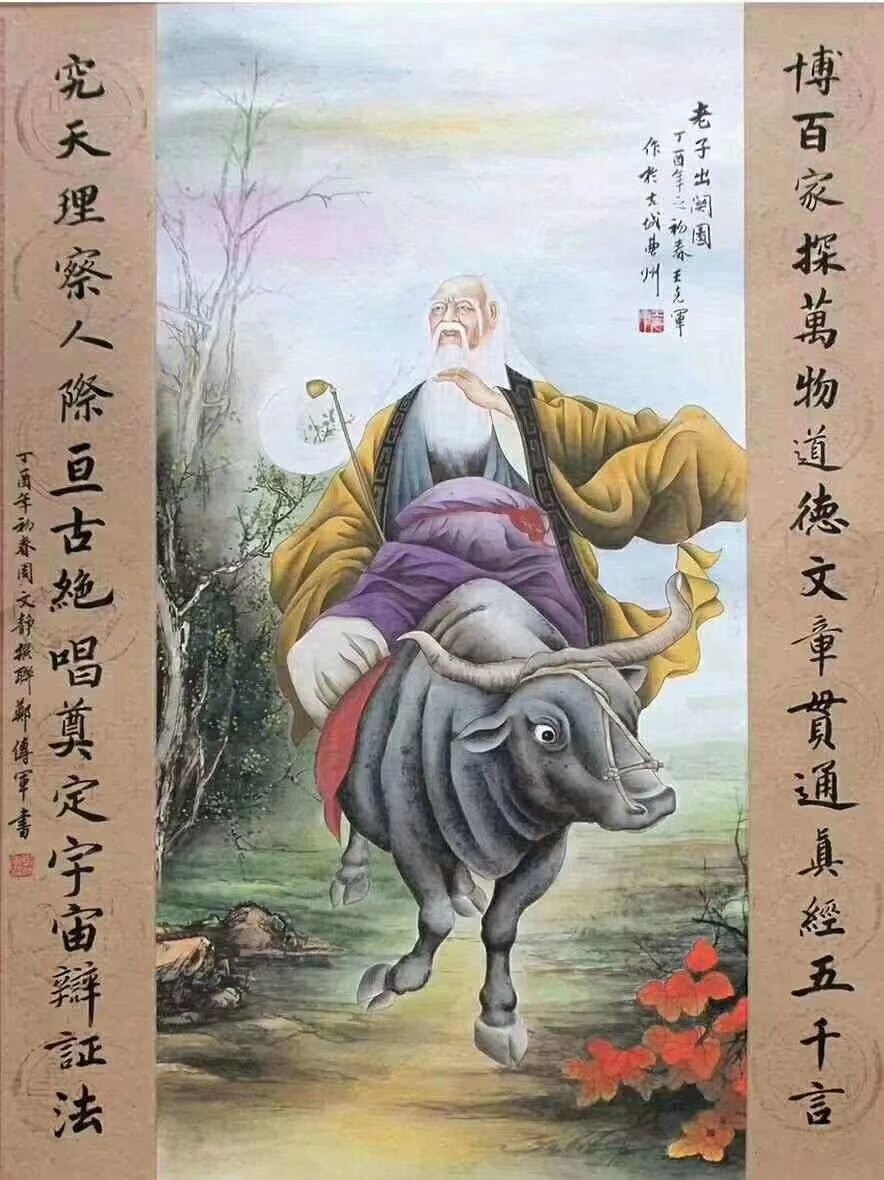 博百家探萬物道德文章貫通眞經五千言
老子出関圖
丁酉年之初春王克軍
作於古城曲州
究天理察人際亘古絶唱奠定宇宙辯証法
丁酉年初春周文静撰聯鄭傳軍書